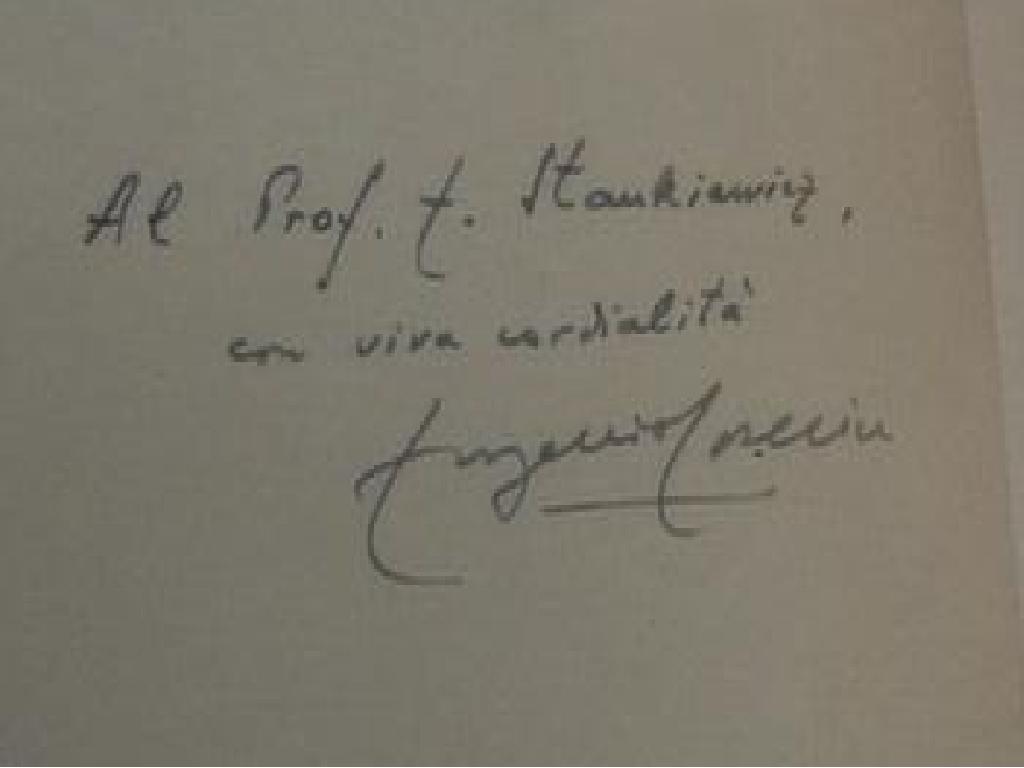 Al Prof. E. Stankiewicz,
con viva cordialità
Eugenio Coseriu